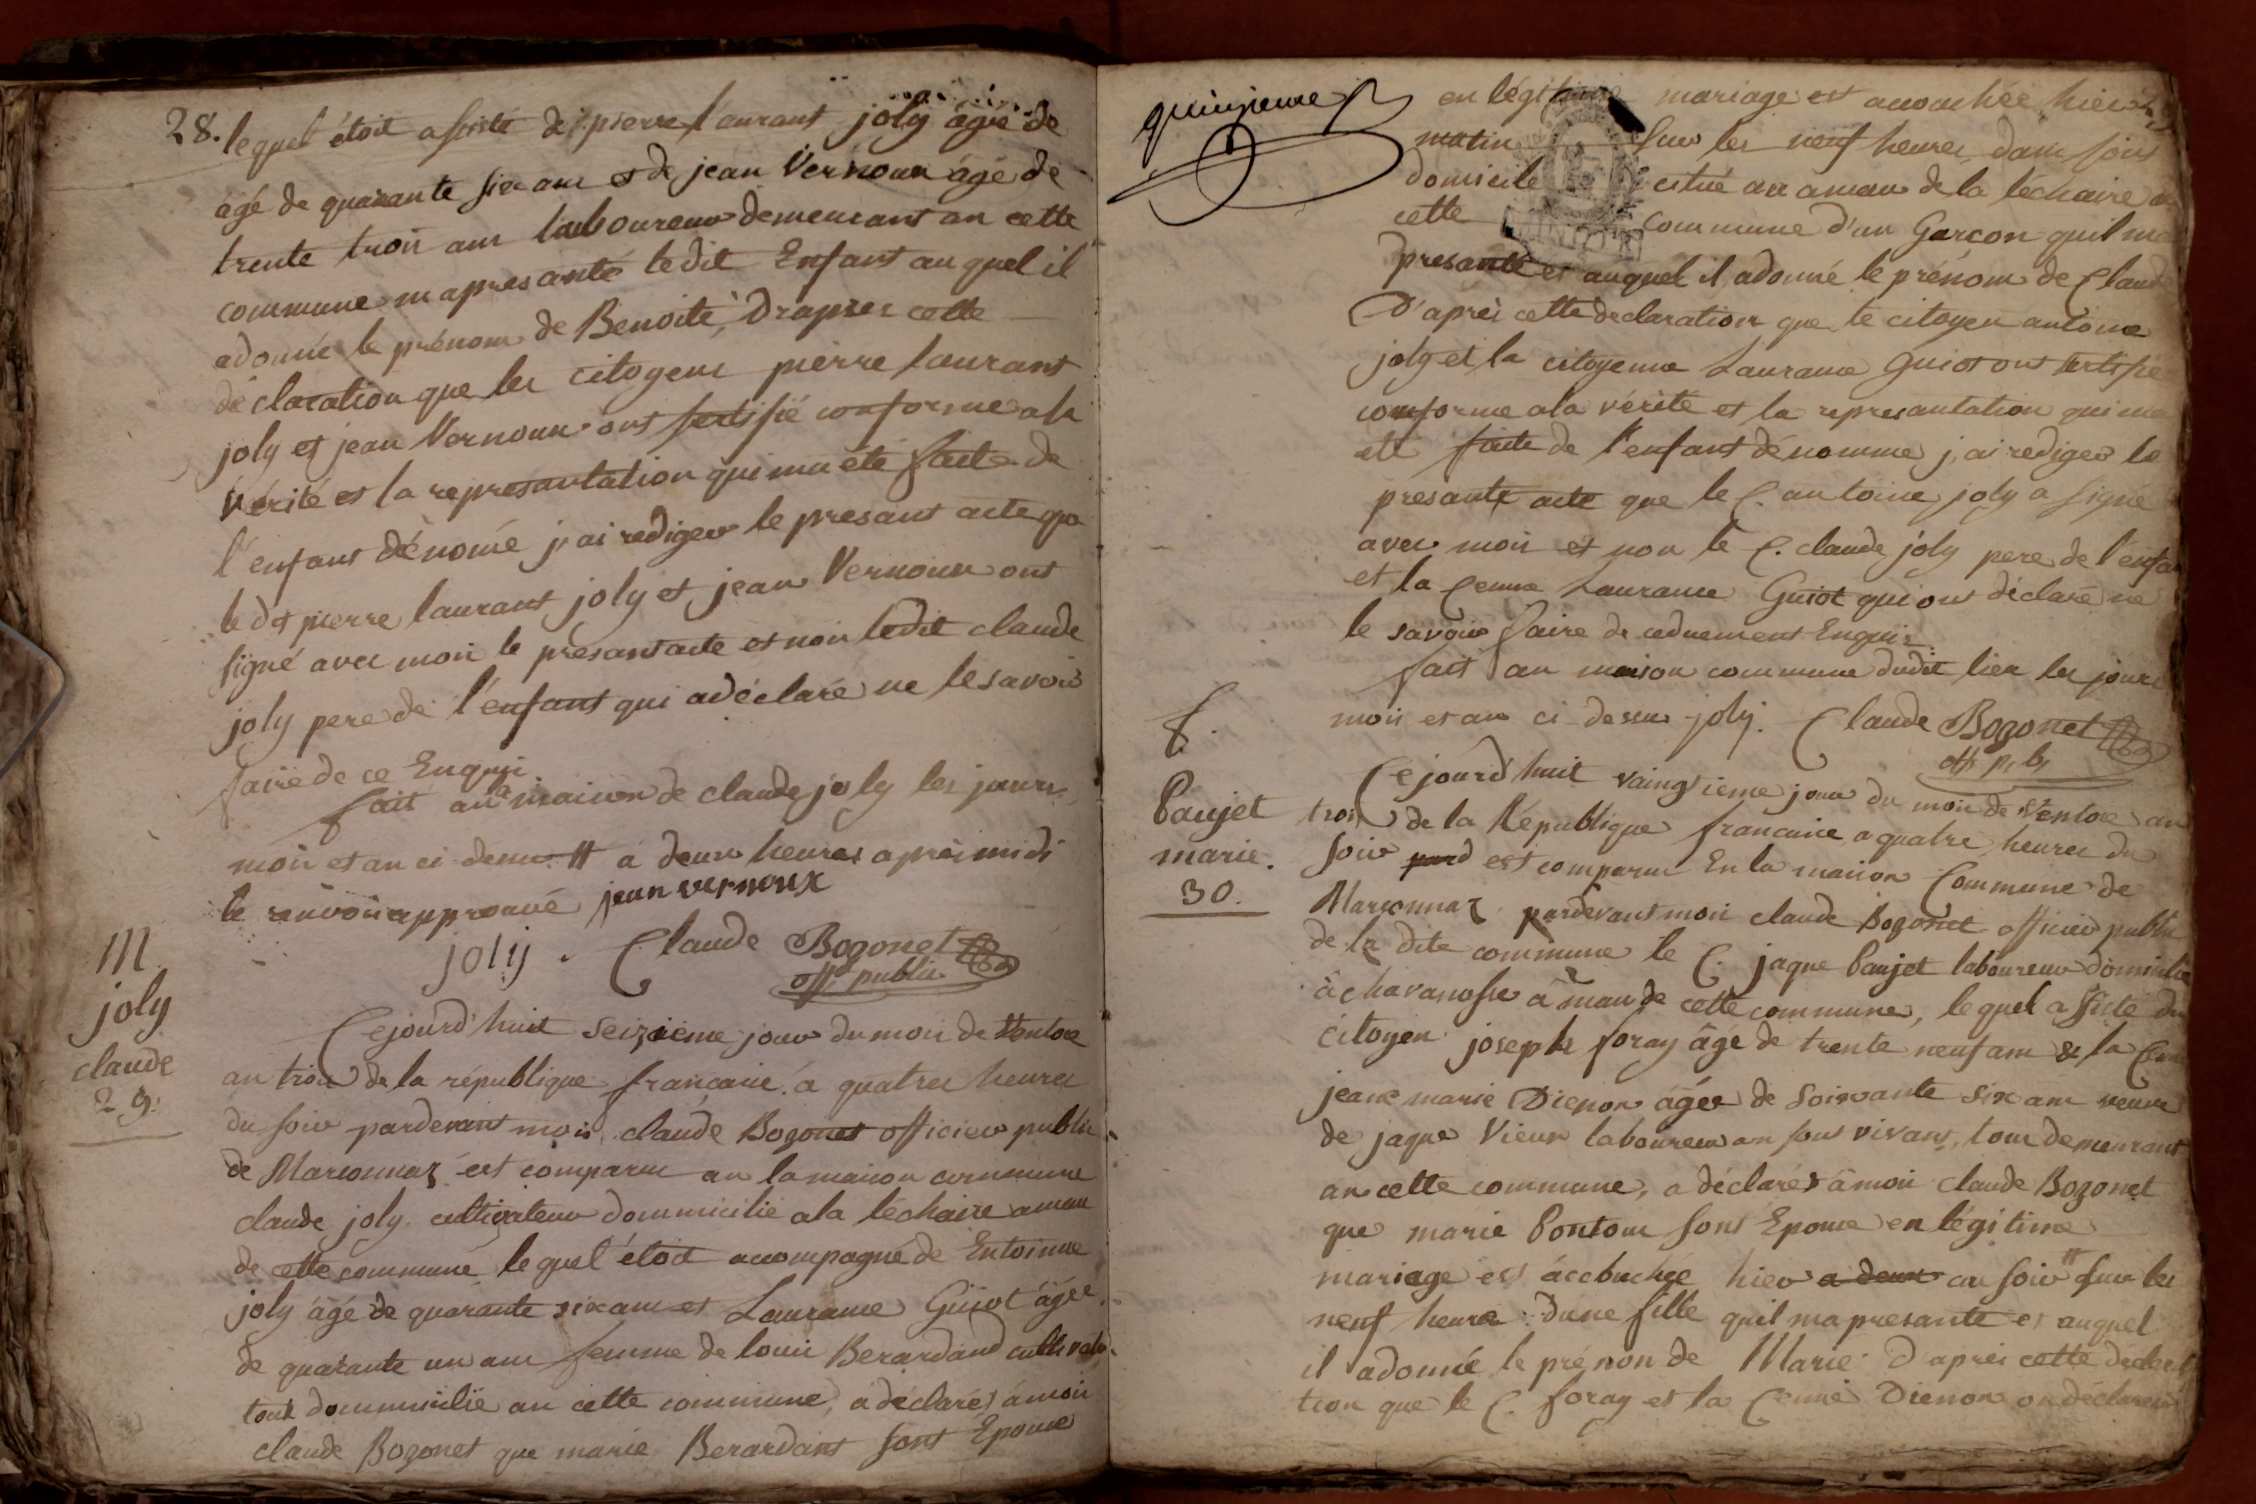 28. lequel étoit assisté de pierre laurant joly âgé de
agé de quarante six ans et de jean Vernoux âgé de
trente trois ans laboureur demeurant an cette
commune m apresanté ledit Enfant auquel il
adonné le prénom de Benoite, Drapres cette
déclaration que les citoyens pierre laurant
joly et jean Vernoux ont sertifié conforme a la
vérité et la represantation qui ma été faite de
l'enfant dénomé j'ai rediger le presant acte que
le dt pierre laurant joly et jean Vernoux ont
signé avec moi le presant acte et non ledit claude
joly pere de l'enfant qui adéclaré ne le savoir
faire de ce Enquis
fait an la maison de claude joly les jours
mois et an ci dessus # a deux heures après midi
le renvoi approuvé jean vernoux
joly. Claude Bozonet
off. public
M.
joly
claude
29.
Cejourd'huit seizieme jour du mois de Ventose
an trois de la république française a quatres heures
du soir pardevant moi claude Bozonet officier public
de Marsonnaz est comparu an la maison commune
claude joly cultivateur dommicilié a la léchaire aman
de cette commune lequel étoit accompagné de Entoinne
joly âgé de quarante six ans et Laurance Guiot âgée
de quarante un ans femme de louis Berardand cultivateur
tout dommicilié an cette commune, a déclarés à moi
claude Bozonet que marie Berardant sont Epouse
quinzieme
en légitime mariage est accouchée hier
matin sur les neuf heures dans sont
domicile citué au aman de la léchaire
cette commune d'un Garcon quil ma
presanté et auquel il adonné le prénom de Claude
D'après cette declaration que le citoyen antoine
joly et la citoyenne Laurance Guiot ont sertifié
conforme ala vérité et la represantation qui ma
été faite de l'enfant dénomme j'ai rediger le
presante acte que le C. antoine joly a signé
avec moi et non le C. claude joly pere de l'enfant
et la Cenne Laurance Guiot qui ont déclaré ne
le savoir faire de ce duement Enquis
fait an maison commune dudit lieu les jours
mois et an ci dessu joly. Claude Bozonet
off. pub.
f.
Paujet
marie.
30.
Cejourd'huit vaingtieme jour du mois de Ventose an
trois de la République francaice a quatre heures du
soir pard est comparu En la maison Commune de
Marsonnaz pardevant moi claude Bozonet officier public
de la dite commune le C. jaque Paujet laboureur domicilié
à chavanosse a man de cette commune, lequel assisté du
citoyen joseph foray âgé de trente neuf ans & la Cenne
jeane marie Dienon âgée de soixante six ans veuve
de jaque Vieux laboureur an sont vivant, tous demeurant
an cette commune, a déclarés à moi claude Bozonet
que marie Pontous sont Epouse en légitime
mariage est accouchée hier a deux au soir # sur les
neuf heures d'une fille quil ma presante et auquel
il adonné le prénon de Marie D'après cette déclara
tion que le C. foray et la Cenne Dienon on déclarer